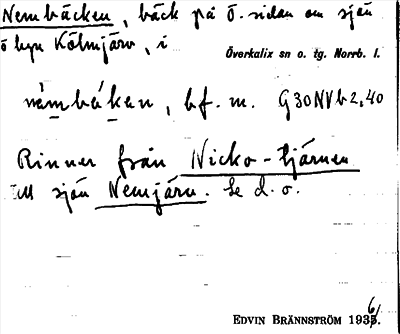 Nembäcken, bäck på ö. sidan om sjön
ö byn Kölmjärv, i
Överkalix sn o. tg. Norrb. l.
nèmbákan, bf. m. G30NVb2,40
Rinner från Nicko-tjärnen
till sjön Nemjärv. Se d. o.
EDVIN BRÄNNSTRÖM 1936.